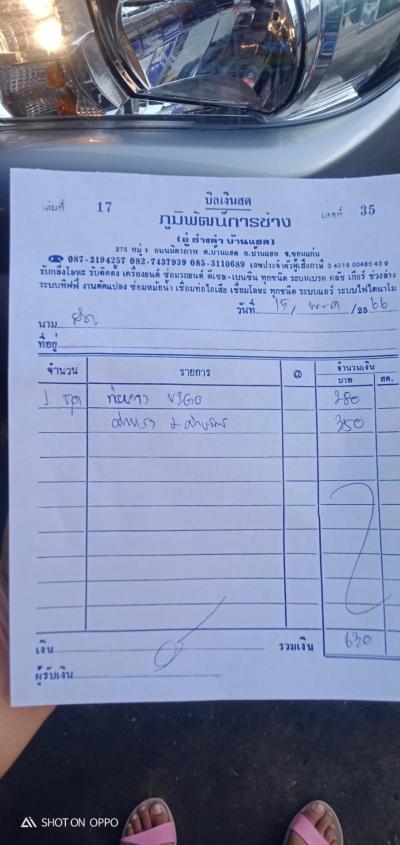 บิลเงินสด
เล่มที่ 17 เลขที่ 35
ภูมิพัฒน์การช่าง
(อู่ ช่างดำ บ้านแฮด)
276 หมู่ 1 ถนนมิตรภาพ ต.บ้านแฮด อ.บ้านแฮด จ.ขอนแก่น
087-2194257 082-7437939 085-3110689 เลขประจำตัวผู้เสียภาษี 3 4018 00485 43 9
รับกลึงโลหะ รับติดตั้ง เครื่องยนต์ ซ่อมรถยนต์ ดีเซล-เบนซิน ทุกชนิด ระบบเบรค คลัช เกียร์ ช่วงล่าง
ระบบไฟฟ้า งานดัดแปลง ซ่อมหม้อน้ำ เชื่อมท่อไอเสีย เชื่อมโลหะ ทุกชนิด ระบบแอร์ ระบบไฟไดนาโม
วันที่ 15 / พ.ค / 25 66
นาม สด
ที่อยู่
จำนวน รายการ @ จำนวนเงิน
บาท สต.
1 ชุด VIGO 280
350
เงิน รวมเงิน 630
ผู้รับเงิน
SHOT ON OPPO